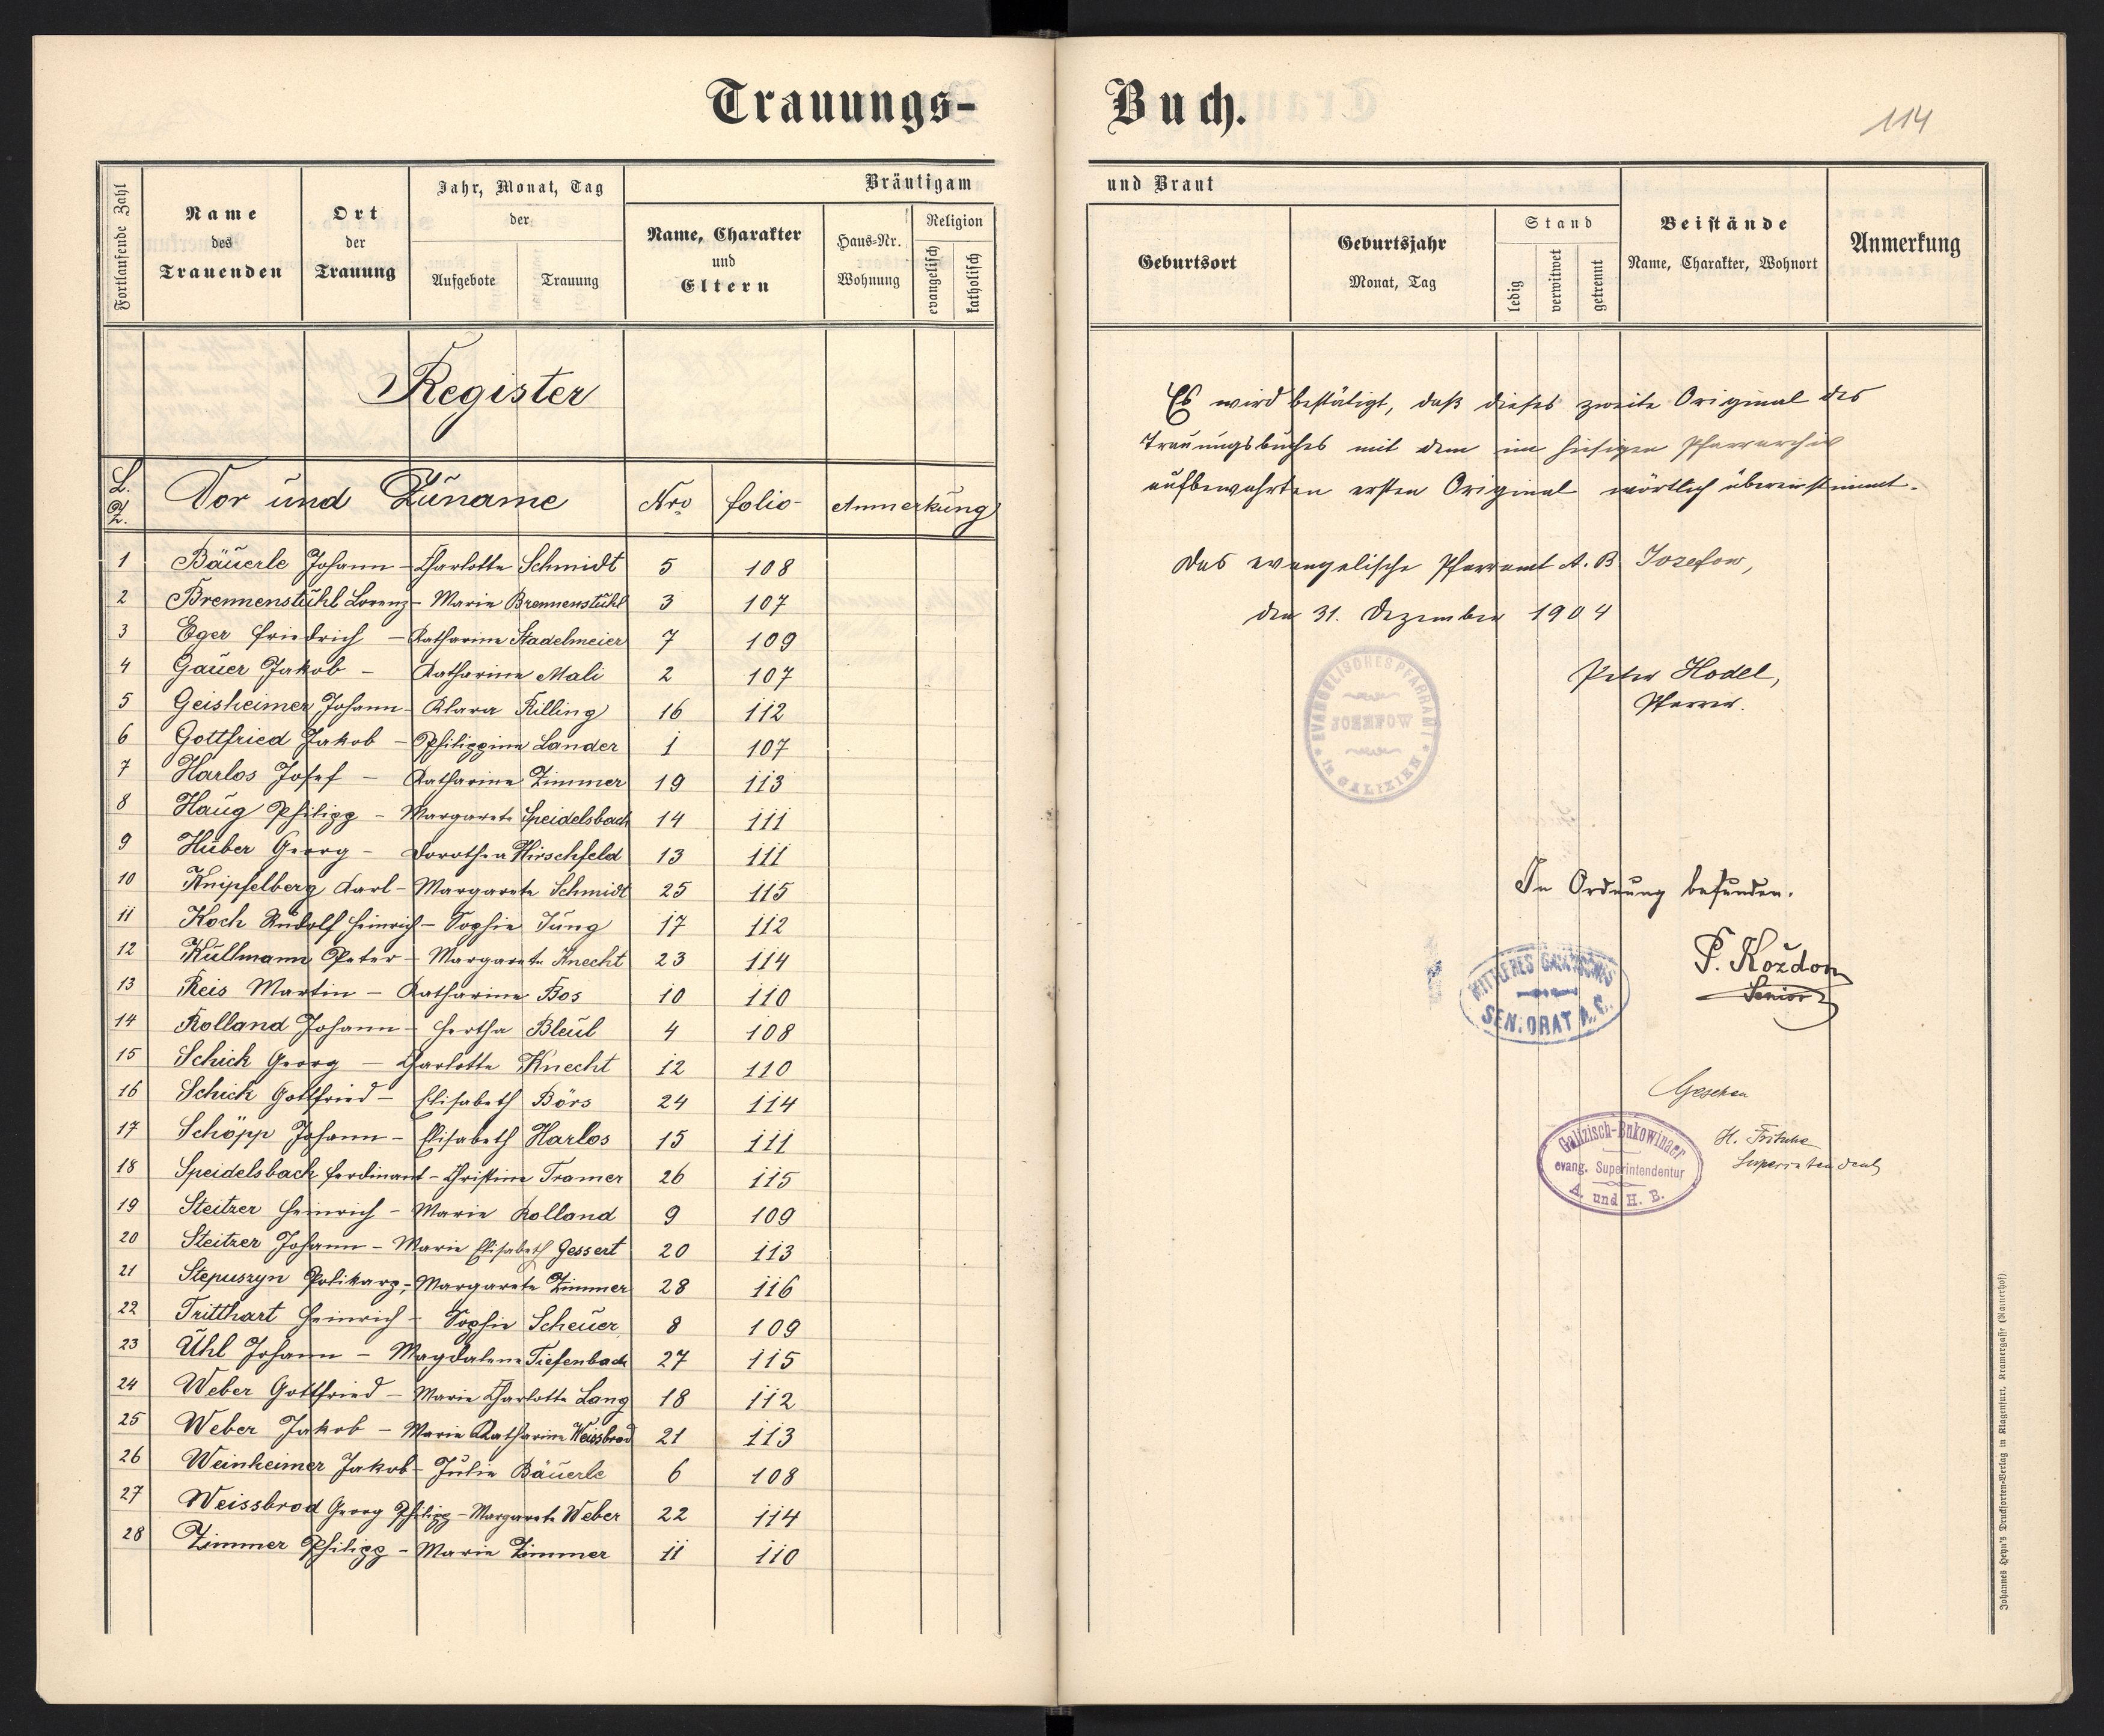 Trauungs-
Fortlaufende Zahl
Name
des
Trauenden
Ort
der
Trauung
Jahr, Monat, Tag
der
Aufgebote
Trauung
Bräutigam
Name, Charakter
und
Eltern
Haus-Nr.
Wohnung
Religion
evangelisch
katholisch
Register
L. Z. Vor und Zuname Nro folio Anmerkung
1 Bäuerle Johann - Charlotte Schmidt 5 108
2 Brennenstuhl Lorenz - Marie Brennenstuhl 3 107
3 Eger Friedrich - Katharine Stadelmeier 7 109
4 Gauer Jakob - Katharine Mali 2 107
5 Geisheimer Johann - Klara Rilling 16 112
6 Gottfried Jakob - Philippine Lander 1 107
7 Harlos Josef - Katharine Zimmer 19 113
8 Haug Philipp - Margarete Speidelsbach 14 111
9 Huber Georg - Dorothea Hirschfeld 13 111
10 Knipfelberg Karl - Margarete Schmidt 25 115
11 Koch Rudolf Heinrich - Sophie Jung 17 112
12 Kullmann Peter - Margarete Knecht 23 114
13 Reis Martin - Katharine Bos 10 110
14 Rolland Johann - Hertha Bleul 4 108
15 Schick Georg - Charlotte Knecht 12 110
16 Schick Gottfried - Elisabeth Börs 24 114
17 Schöpp Johann - Elisabeth Harlos 15 111
18 Speidelsbach Ferdinant - Christine Tramer 26 115
19 Steitzer Heinrich - Marie Rolland 9 109
20 Steitzer Johann - Marie Elisabeth Gessert 20 113
21 Stepuszyn Polikarp - Margarete Zimmer 28 116
22 Tritthart Heinrich - Sophie Scheuer 8 109
23 Uhl Johann - Magdalene Tiefenbach 27 115
24 Weber Gottfried - Marie Charlotte Lang 18 112
25 Weber Jakob - Marie Katharine Weissbrod 21 113
26 Weinheimer Jakob - Julie Bäuerle 6 108
27 Weissbrod Georg Philipp - Margarete Weber 22 114
28 Zimmer Philipp - Marie Zimmer 11 110
Buch.
114
und Braut
Geburtsort
Geburtsjahr
Monat, Tag
Stand
ledig
verwitwet
getrennt
Beistände
Name, Charakter, Wohnort
Anmerkung
Es wird bestätigt, daß dieses zweite Original des
Trauungsbuches mit dem im hiesigen Pfarrarchiv
aufbewahrten ersten Original wörtlich übereinstimmt.
Das evangelische Pfarramt A. B. Josefow,
den 31. Dezember 1904
EVANGELISCHES PFARRAMT
JOZEFOW
in GALIZIEN
Peter Hodel,
Pfarrer.
In Ordnung befunden.
MITTLERES
SENIORAT A. C.
P. Kożdon
Senior
Gesehen
Galizisch-Bukowinaer
evang. Superintendentur
A. und H. B.
H. Fritsche
Superintendent
Johannes Heyn's Drucksorten-Verlag in Klagenfurt, Kramergasse (Rainerhof).